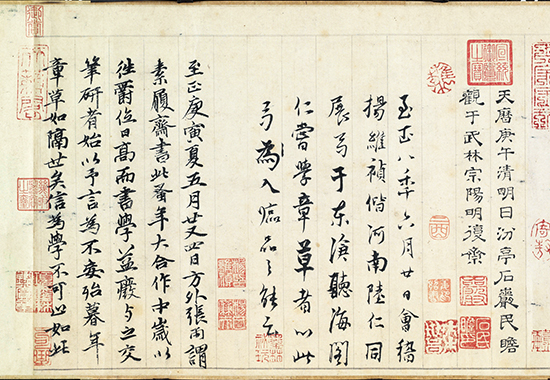 天曆庚午清明日汾亭石巖民瞻
觀于武林宗陽明復齋
至正八年六月廿日會稽
楊維禎偕河南陸仁同
展弓于东滄聽海閣
仁嘗學章草者以此
弓為入臨品之能云
至正庚寅夏五月廿又四日方外張雨謂
素履齋書此蚤年大合作中歲以
往爵位日高而書學益廢与之交
筆研者始以予言為不妄殆暮年
章草如隔世矣信為學不可以如此